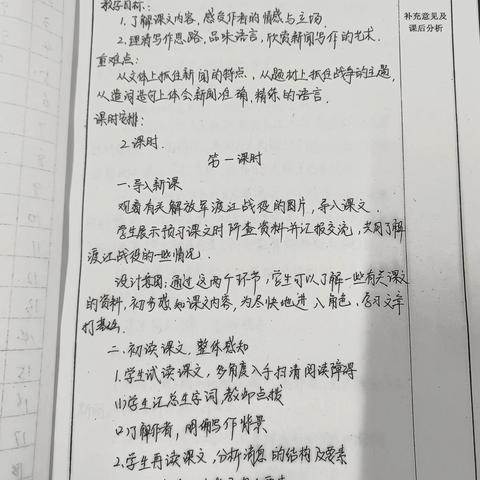 教学目标:
1.了解课文内容,感受作者的情感与立场.
2.理清写作思路,品味语言,欣赏新闻写作的艺术.
重难点:
从文体上抓住新闻的特点,从题材上抓住战争的主题,
从遣词造句上体会新闻准确,精练的语言.
课时安排:
2课时.
第一课时
一.导入新课
观看有关解放军渡江战役的图片,导入课文.
学生展示预习课文时所查资料并汇报交流,共同了解
渡江战役的一些情况.
设计意图:通过这两个环节,学生可以了解一些有关课文
的资料,初步感知课文内容,为尽快地进入角色,学习文章
打基础.
二.初读课文,整体感知
1.学生试读课文,多角度入手扫清阅读障碍
(1)学生汇总生字词,教师点拨
(2)了解作者,明确写作背景
2.学生再读课文,分析消息的结构及要素
补充意见及
课后分析